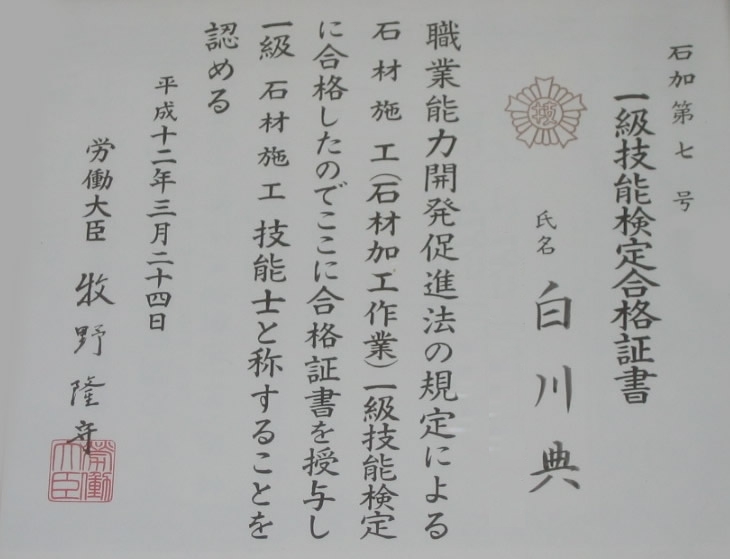 石加第七号
一級技能検定合格証書
技
氏名 白川典
職業能力開発促進法の規定による
石材施工(石材加工作業)一級技能検定
に合格したのでここに合格証書を授与し
一級 石材施工 技能士と称することを
認める
平成十二年三月二十四日
労働大臣 牧野隆守
労働大臣